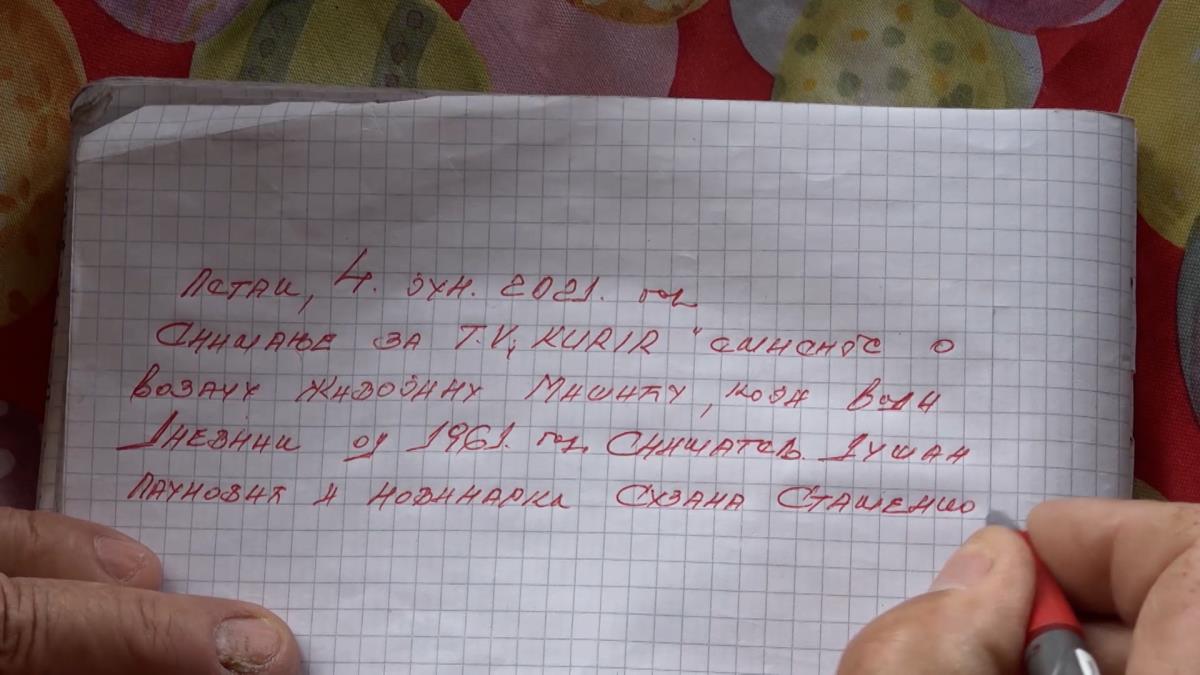 Петак, 4. јун. 2021. год
Снимање за T.V, KURIR о
возачу Живојину Машићу, који води
Дневник од 1961. год. Сниматељ. Душан
Пауновић и новинарка Сузана Стаменко